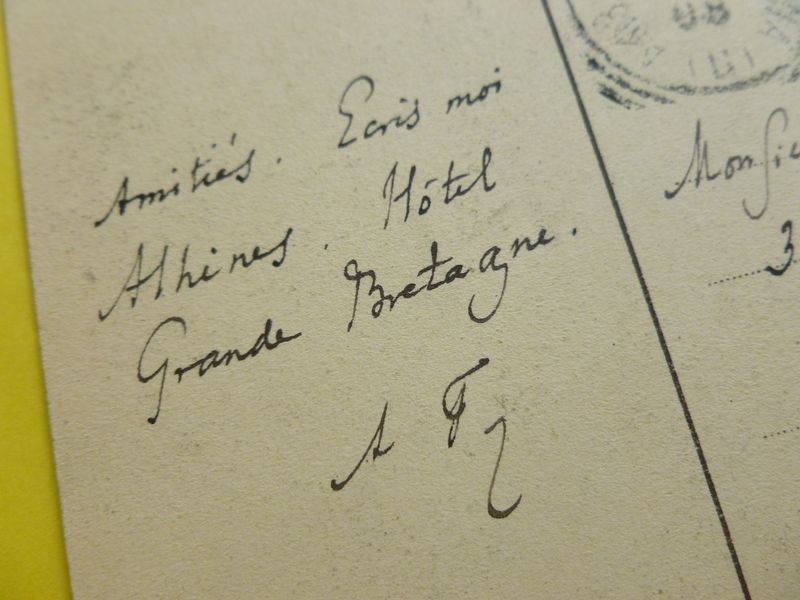 Amitiés. Ecris moi
Athènes. Hôtel
Grande Bretagne.
A F
Monsie
3